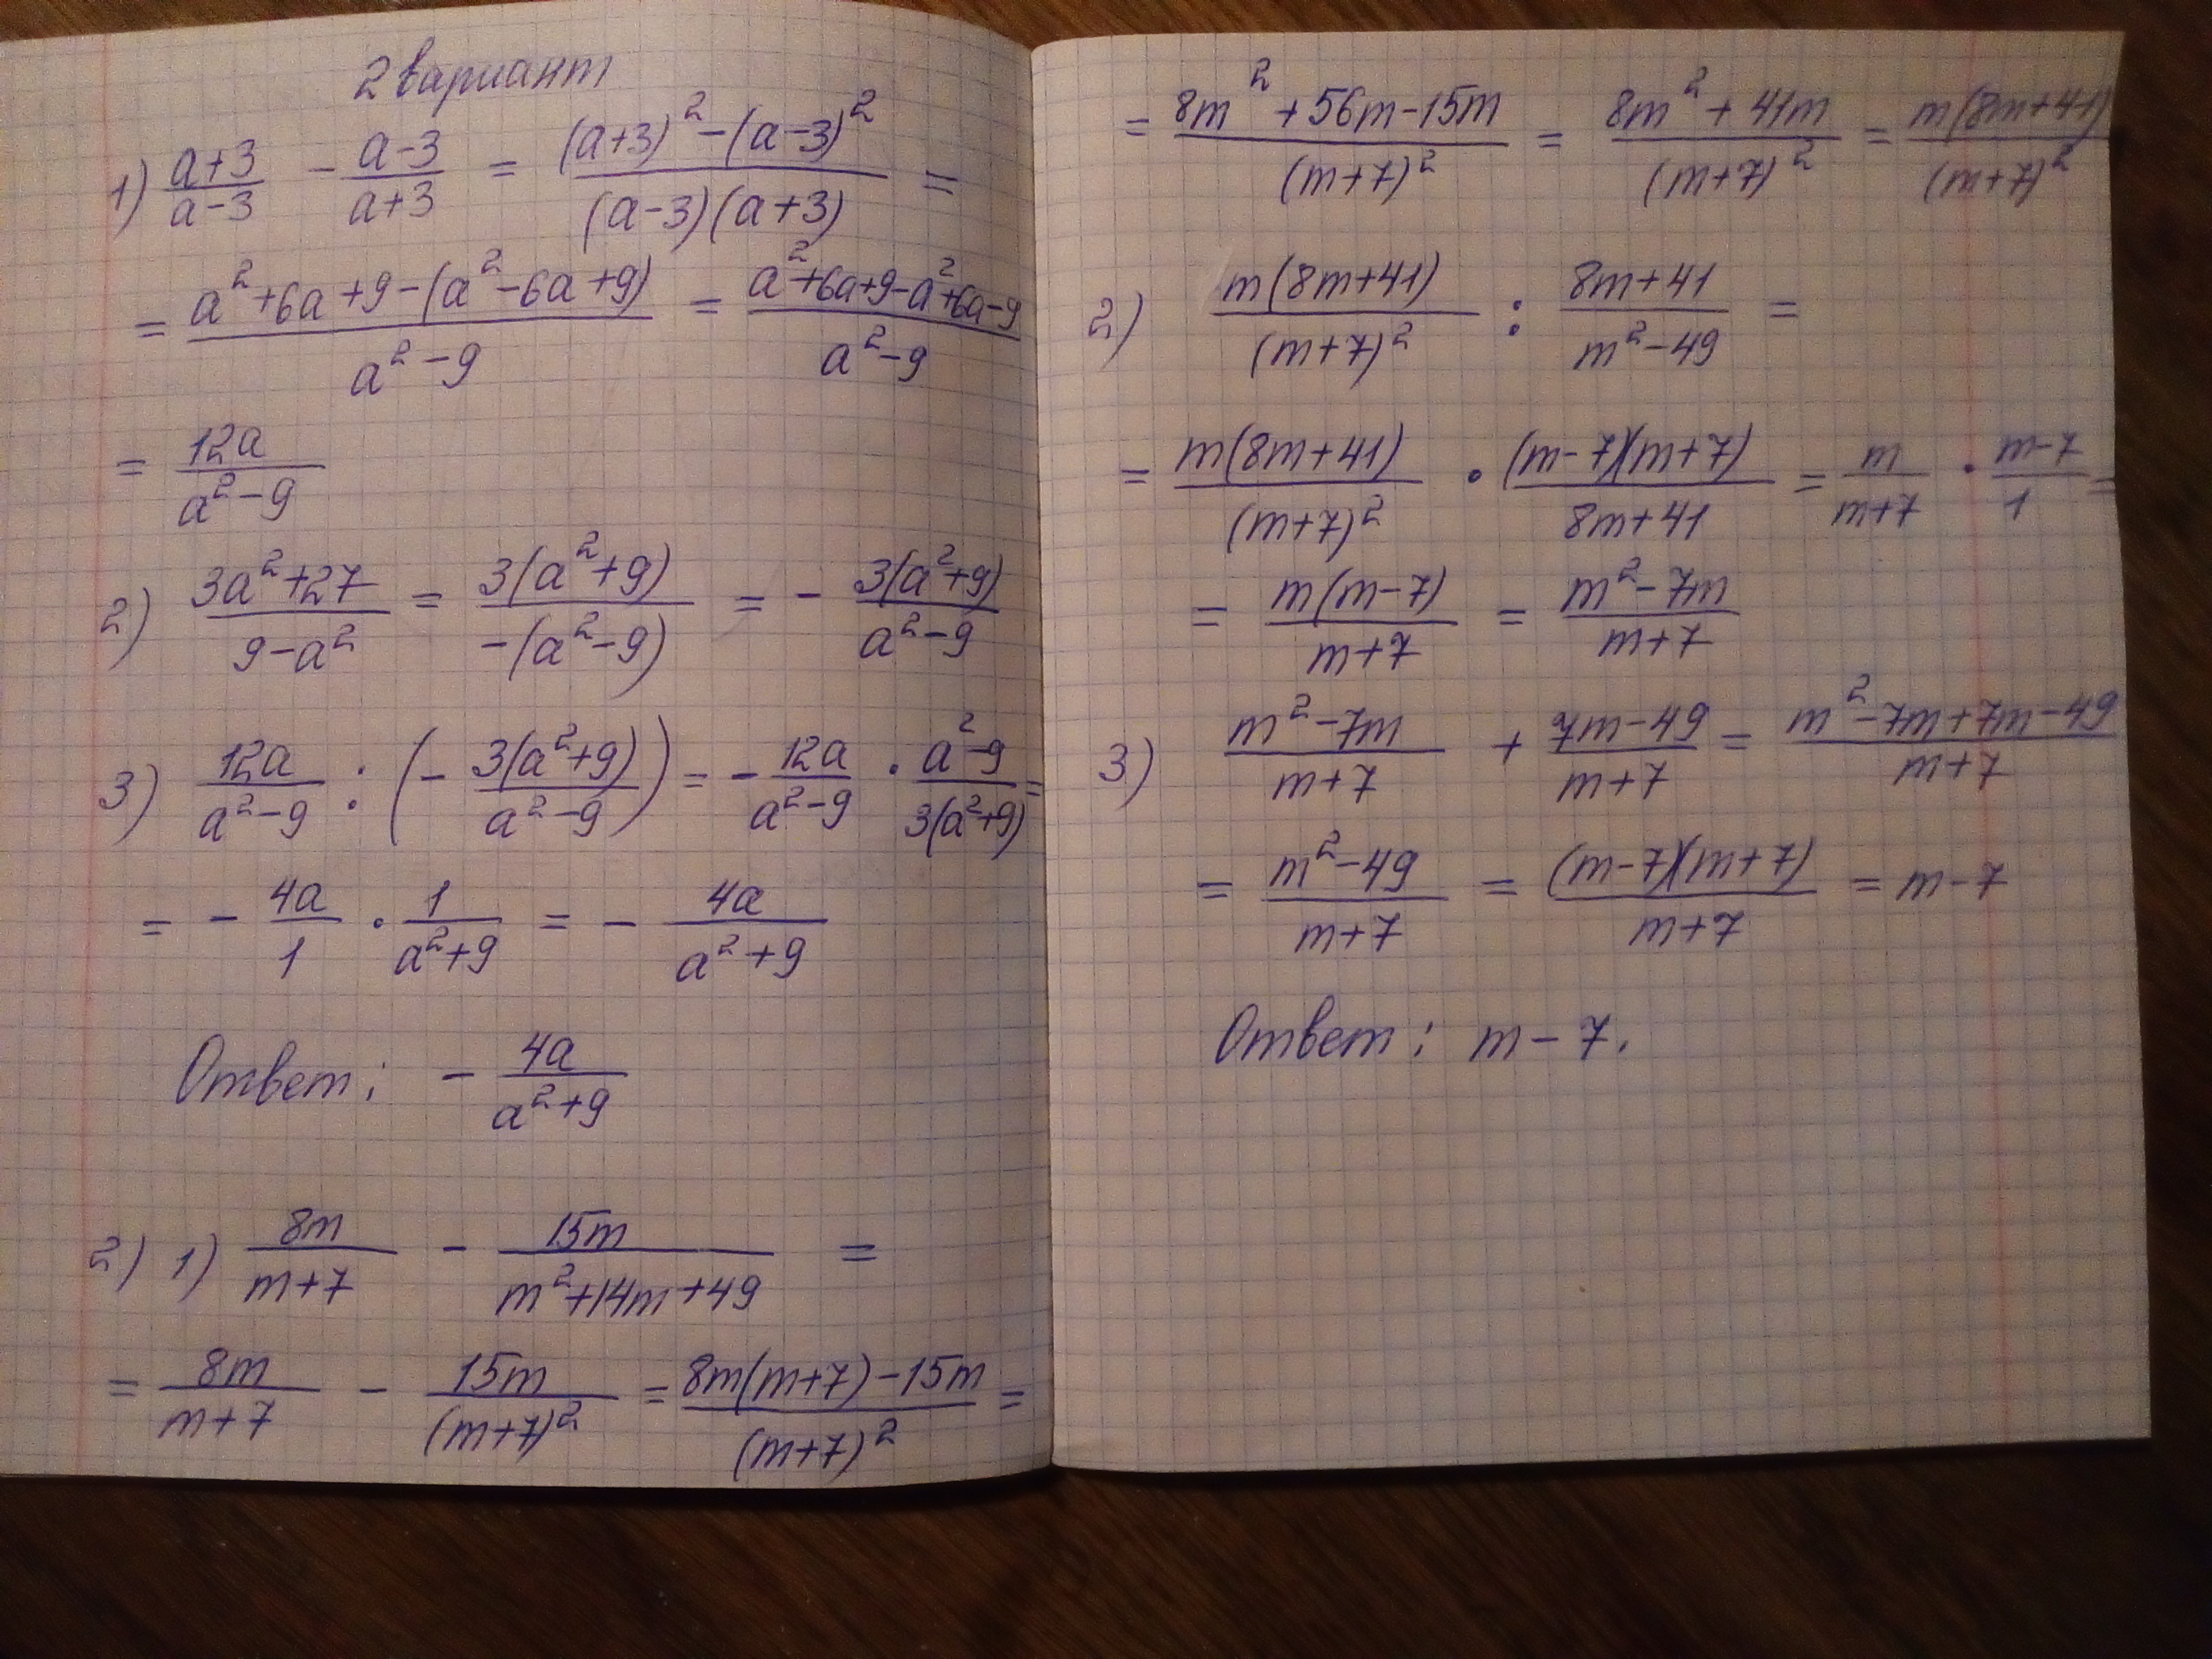 2 вариант
1) (a+3)/(a-3) - (a-3)/(a+3) = ((a+3)² - (a-3)²)/((a-3)(a+3)) =
= (a²+6a+9-(a²-6a+9))/(a²-9) = (a²+6a+9-a²+6a-9)/(a²-9)
= 12a/(a²-9)
2) (3a²+27)/(9-a²) = 3(a²+9)/(-(a²-9)) = - 3(a²+9)/(a²-9)
3) 12a/(a²-9) : (- 3(a²+9)/(a²-9)) = - 12a/(a²-9) · (a²-9)/(3(a²+9)) =
= - 4a/1 · 1/(a²+9) = - 4a/(a²+9)
Ответ: - 4a/(a²+9)
2) 1) 8m/(m+7) - 15m/(m²+14m+49) =
= 8m/(m+7) - 15m/(m+7)² = (8m(m+7)-15m)/(m+7)² =
= (8m²+56m-15m)/(m+7)² = (8m²+41m)/(m+7)² = m(8m+41)/(m+7)²
2) m(8m+41)/(m+7)² : (8m+41)/(m²-49) =
= m(8m+41)/(m+7)² · (m-7)(m+7)/(8m+41) = m/(m+7) · (m-7)/1 =
= m(m-7)/(m+7) = (m²-7m)/(m+7)
3) (m²-7m)/(m+7) + (7m-49)/(m+7) = (m²-7m+7m-49)/(m+7)
= (m²-49)/(m+7) = (m-7)(m+7)/(m+7) = m-7
Ответ: m-7.